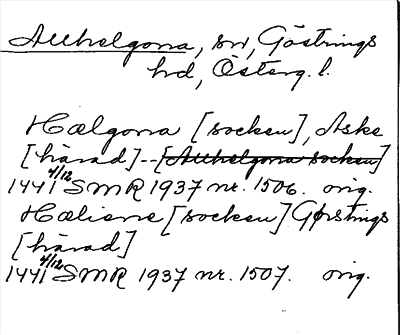 Allhelgona, sn, Göstrings
hd, Österg. l.
Hælgona [socken], Aske
[härad]--[Allhelgona socken]
1441 4/12 SMR 1937 nr. 1506. orig.
Hælisne [socken] Gørstings
[härad]
1441 4/12 SMR 1937 nr. 1507. orig.